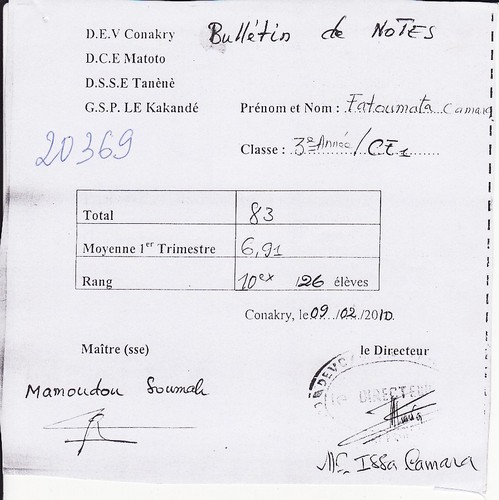 D.E.V Conakry Bulletin de NOTES
D.C.E Matoto
D.S.S.E Tanènè
G.S.P. LE Kakandé Prénom et Nom : Fatoumata Camara
20369
Classe : 3e Année / CE1
Total 83
Moyenne 1er Trimestre 6,91
Rang 10ex /26 élèves
Conakry, le 09/02/2010.
Maître (sse) le Directeur
Mamoudou Soumah
le DIRECTEUR
Mr Issa Camara